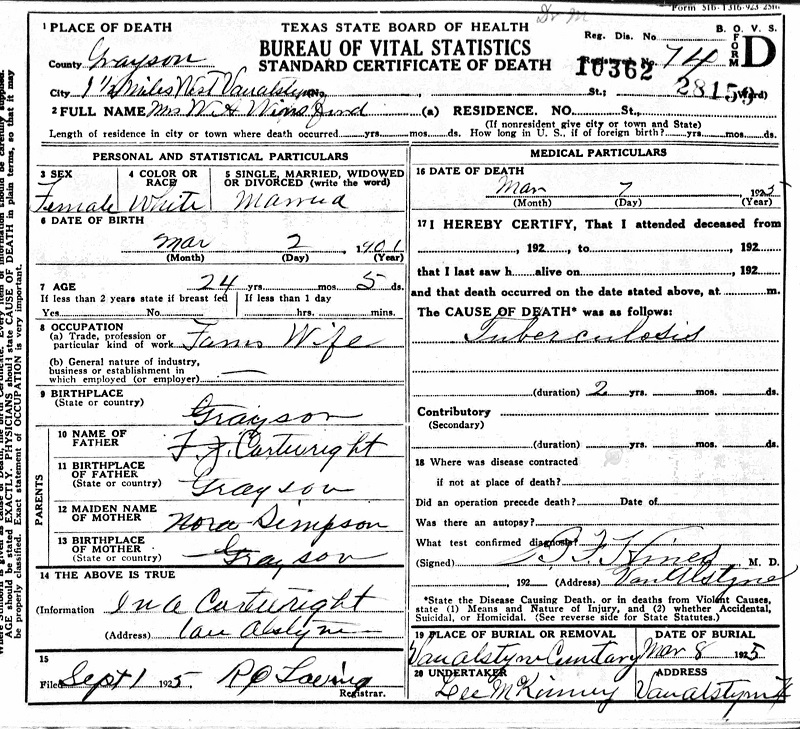 Form 51b-1316-923 25M
TEXAS STATE BOARD OF HEALTH
BUREAU OF VITAL STATISTICS
STANDARD CERTIFICATE OF DEATH
B. O. V. S.
FORM D
Reg. Dis. No.
Registered No. 74
10362
28159
1 PLACE OF DEATH
County Grayson
City 1 1/2 Miles West Vanalstyne No. St.; Ward)
2 FULL NAME Mrs W. H (a) RESIDENCE. NO. St.,
(If nonresident give city or town and State)
Length of residence in city or town where death occurred yrs. mos. ds. How long in U. S., if of foreign birth? yrs. mos. ds.
PERSONAL AND STATISTICAL PARTICULARS
3 SEX
Female
4 COLOR OR RACE
White
5 SINGLE, MARRIED, WIDOWED OR DIVORCED (write the word)
Married
6 DATE OF BIRTH
Mar 2, 1901
(Month) (Day) (Year)
7 AGE 24 yrs. mos. 5 ds.
If less than 2 years state if breast fed
Yes No
If less than 1 day
hrs. mins.
8 OCCUPATION
(a) Trade, profession or particular kind of work Farm Wife
(b) General nature of industry, business or establishment in which employed (or employer) —
9 BIRTHPLACE
(State or country) Grayson
PARENTS
10 NAME OF FATHER F. J. Cartwright
11 BIRTHPLACE OF FATHER
(State or country) Grayson
12 MAIDEN NAME OF MOTHER Nora Simpson
13 BIRTHPLACE OF MOTHER
(State or country) Grayson
14 THE ABOVE IS TRUE
(Information Ina Cartwright
(Address) Van Alstyne
15
Filed Sept 1 1925 R O Loving
Registrar.
MEDICAL PARTICULARS
16 DATE OF DEATH
Mar 7 1925
(Month) (Day) (Year)
17 I HEREBY CERTIFY, That I attended deceased from
, 192 , to , 192
that I last saw h alive on , 192
and that death occurred on the date stated above, at m.
The CAUSE OF DEATH* was as follows:
Tuberculosis
(duration) 2 yrs. mos. ds.
Contributory
(Secondary)
(duration) yrs. mos. ds.
18 Where was disease contracted
if not at place of death?
Did an operation precede death? Date of
Was there an autopsy?
What test confirmed diagnosis?
(Signed) B F Hines M. D.
, 192 (Address) Van Alstyne
*State the Disease Causing Death, or in deaths from Violent Causes, state (1) Means and Nature of Injury, and (2) whether Accidental, Suicidal, or Homicidal. (See reverse side for State Statutes.)
19 PLACE OF BURIAL OR REMOVAL
Vanalstyne Cemetary
DATE OF BURIAL
Mar 8 1925
20 UNDERTAKER
Lee McKinney
ADDRESS
Vanalstyne